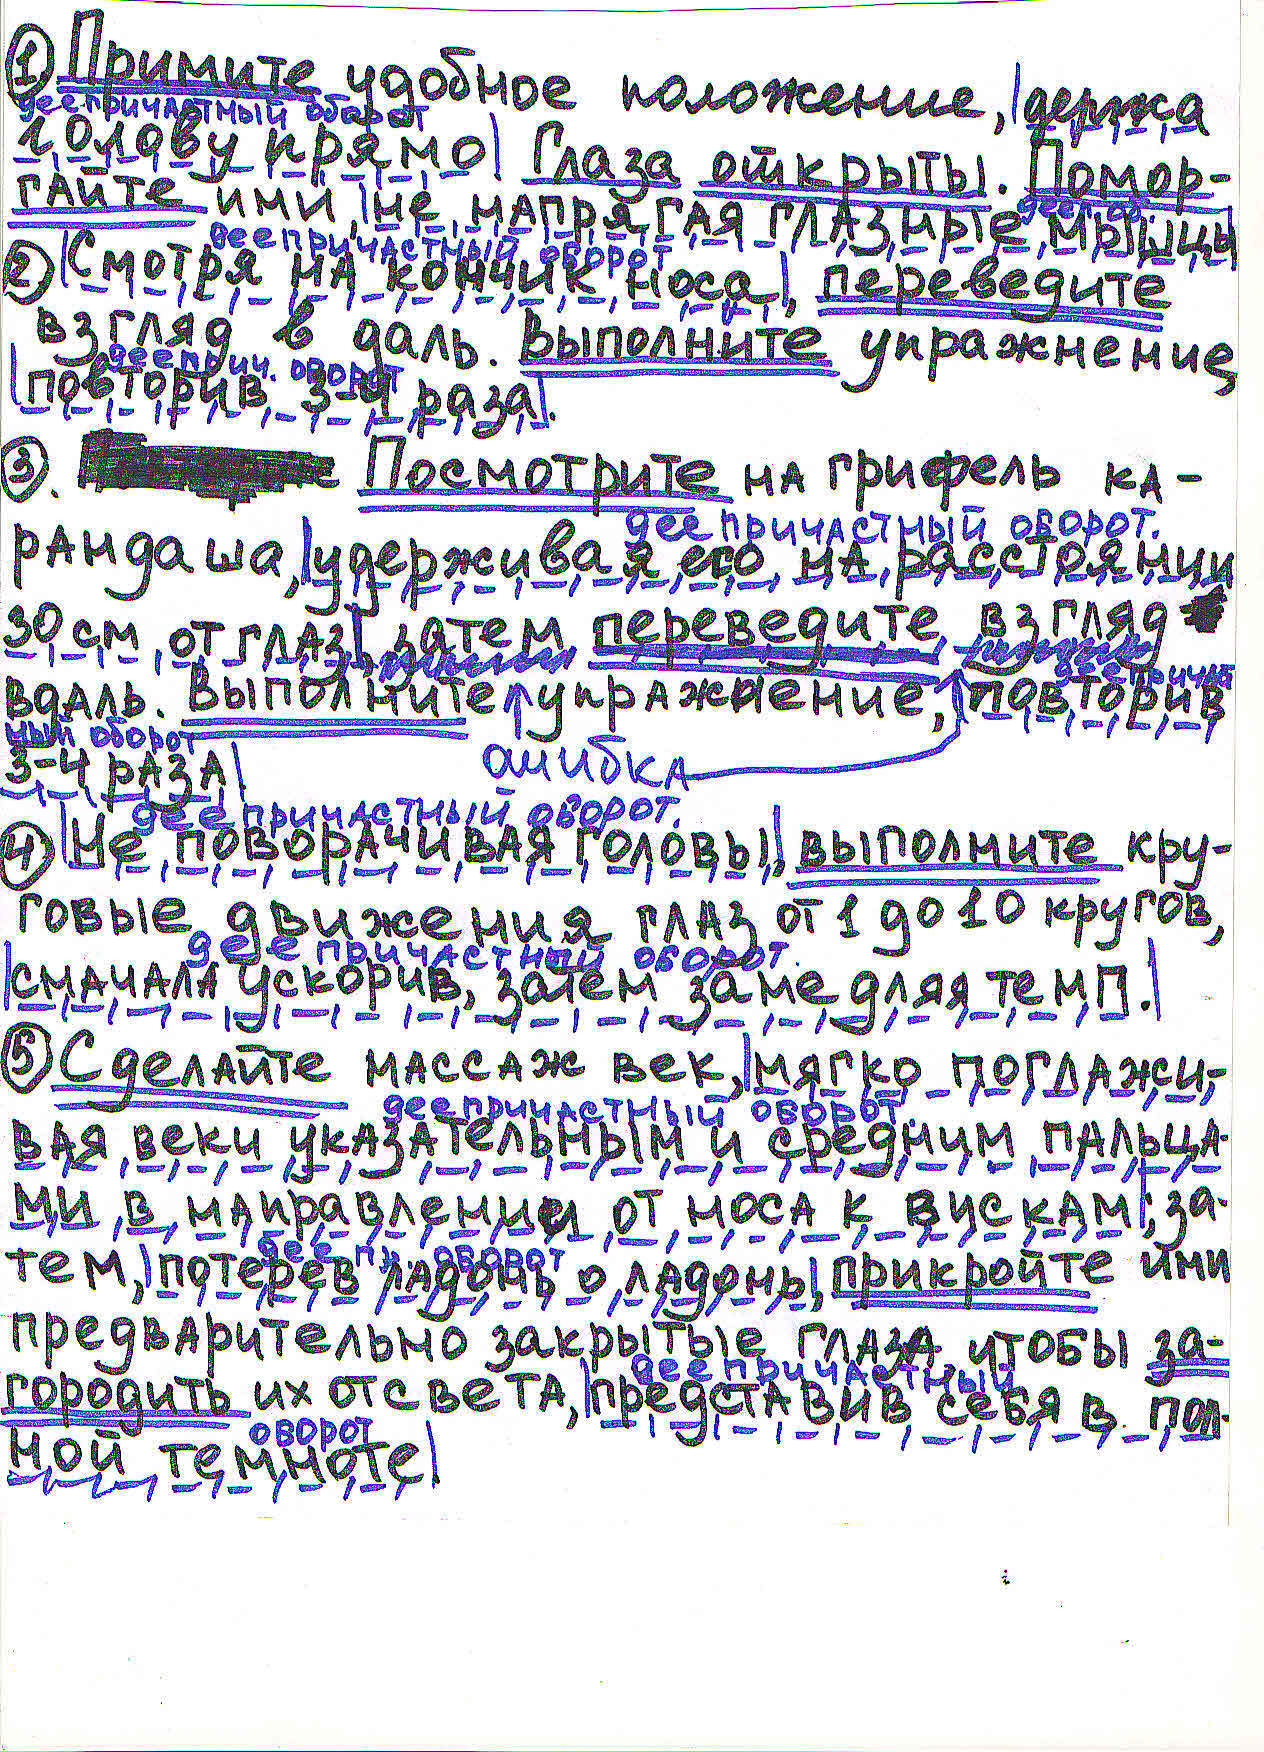 ① Примите удобное положение, |держа
деепричастный оборот
голову прямо| Глаза открыты. Помор-
гайте ими, |не напрягая глазные мышцы|
деепричастный оборот
② |Смотря на кончик носа|, переведите
взгляд в даль. Выполните упражнение,
дееприч. оборот
|повторив 3-4 раза|.
③. Посмотрите на грифель ка-
деепричастный оборот.
рандаша, |удерживая его на расстоянии
30 см от глаз|, затем переведите взгляд
вдаль. Выполните упражнение, |повторив
деепричаст
ный оборот
3-4 раза|
ошибка
деепричастный оборот.
④ |Не поворачивая головы|, выполните кру-
говые движения глаз от 1 до 10 кругов,
деепричастный оборот.
|сначала ускорив, затем замедляя темп.|
⑤ Сделайте массаж век, |мягко поглажи-
деепричастный оборот.
вая веки указательным и средним пальца-
ми в направлении от носа к вускам|, за-
дее пр. оборот
тем, |потерев ладонь о ладонь|, прикройте ими
предварительно закрытые глаза, чтобы за-
деепричастный
городить их от света, |представив себя в пол-
оборот
ной темноте|